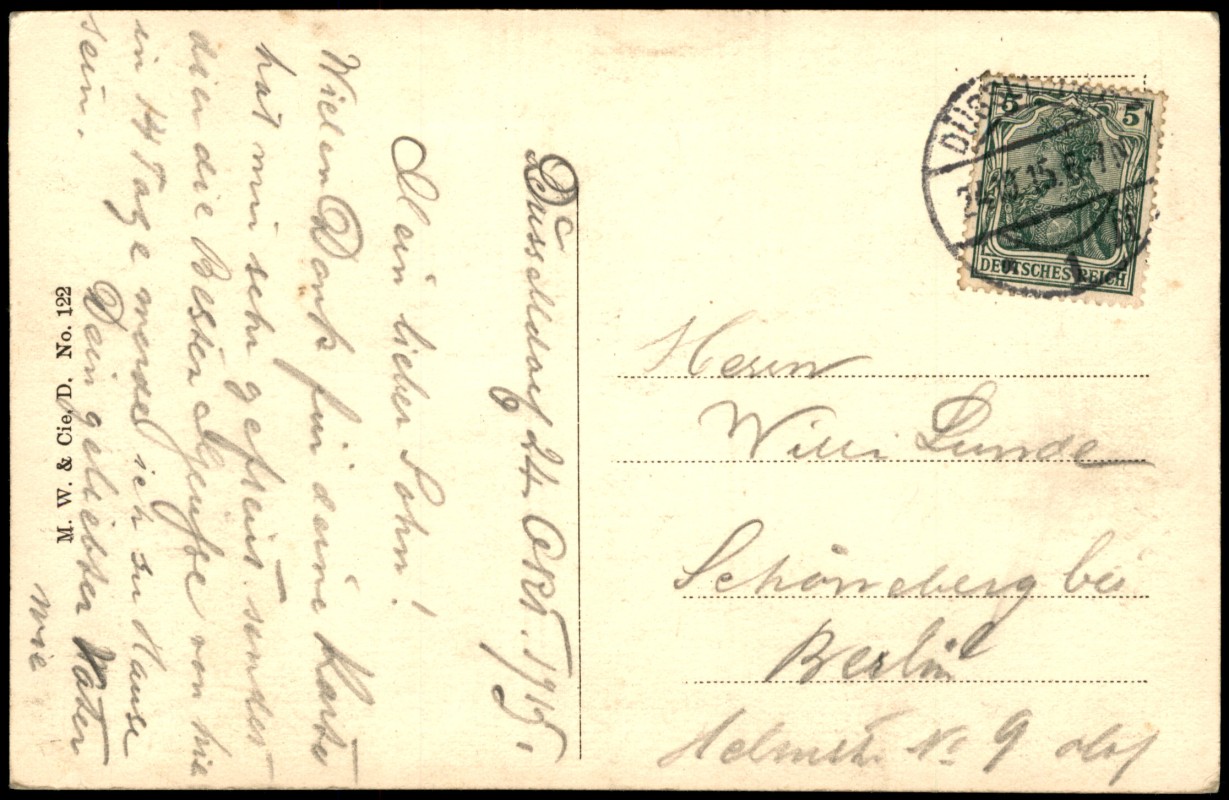 Düsseldorf 24 Okt. 1915.
Mein lieber Sohn!
Vielen Dank für deine Karte
hat mir sehr gefreut. sendet
dien die Besten Grüsse von hie
in 14 Tage werde ich zu Hause
sein.
Dein geliebter Vater
M. W. & Cie. D. No. 122
5 5
15. 6-7 N
DEUTSCHES REICH
Herrn
Willi Lunde
Schöneberg bei
Berlin
Helmstr No 9